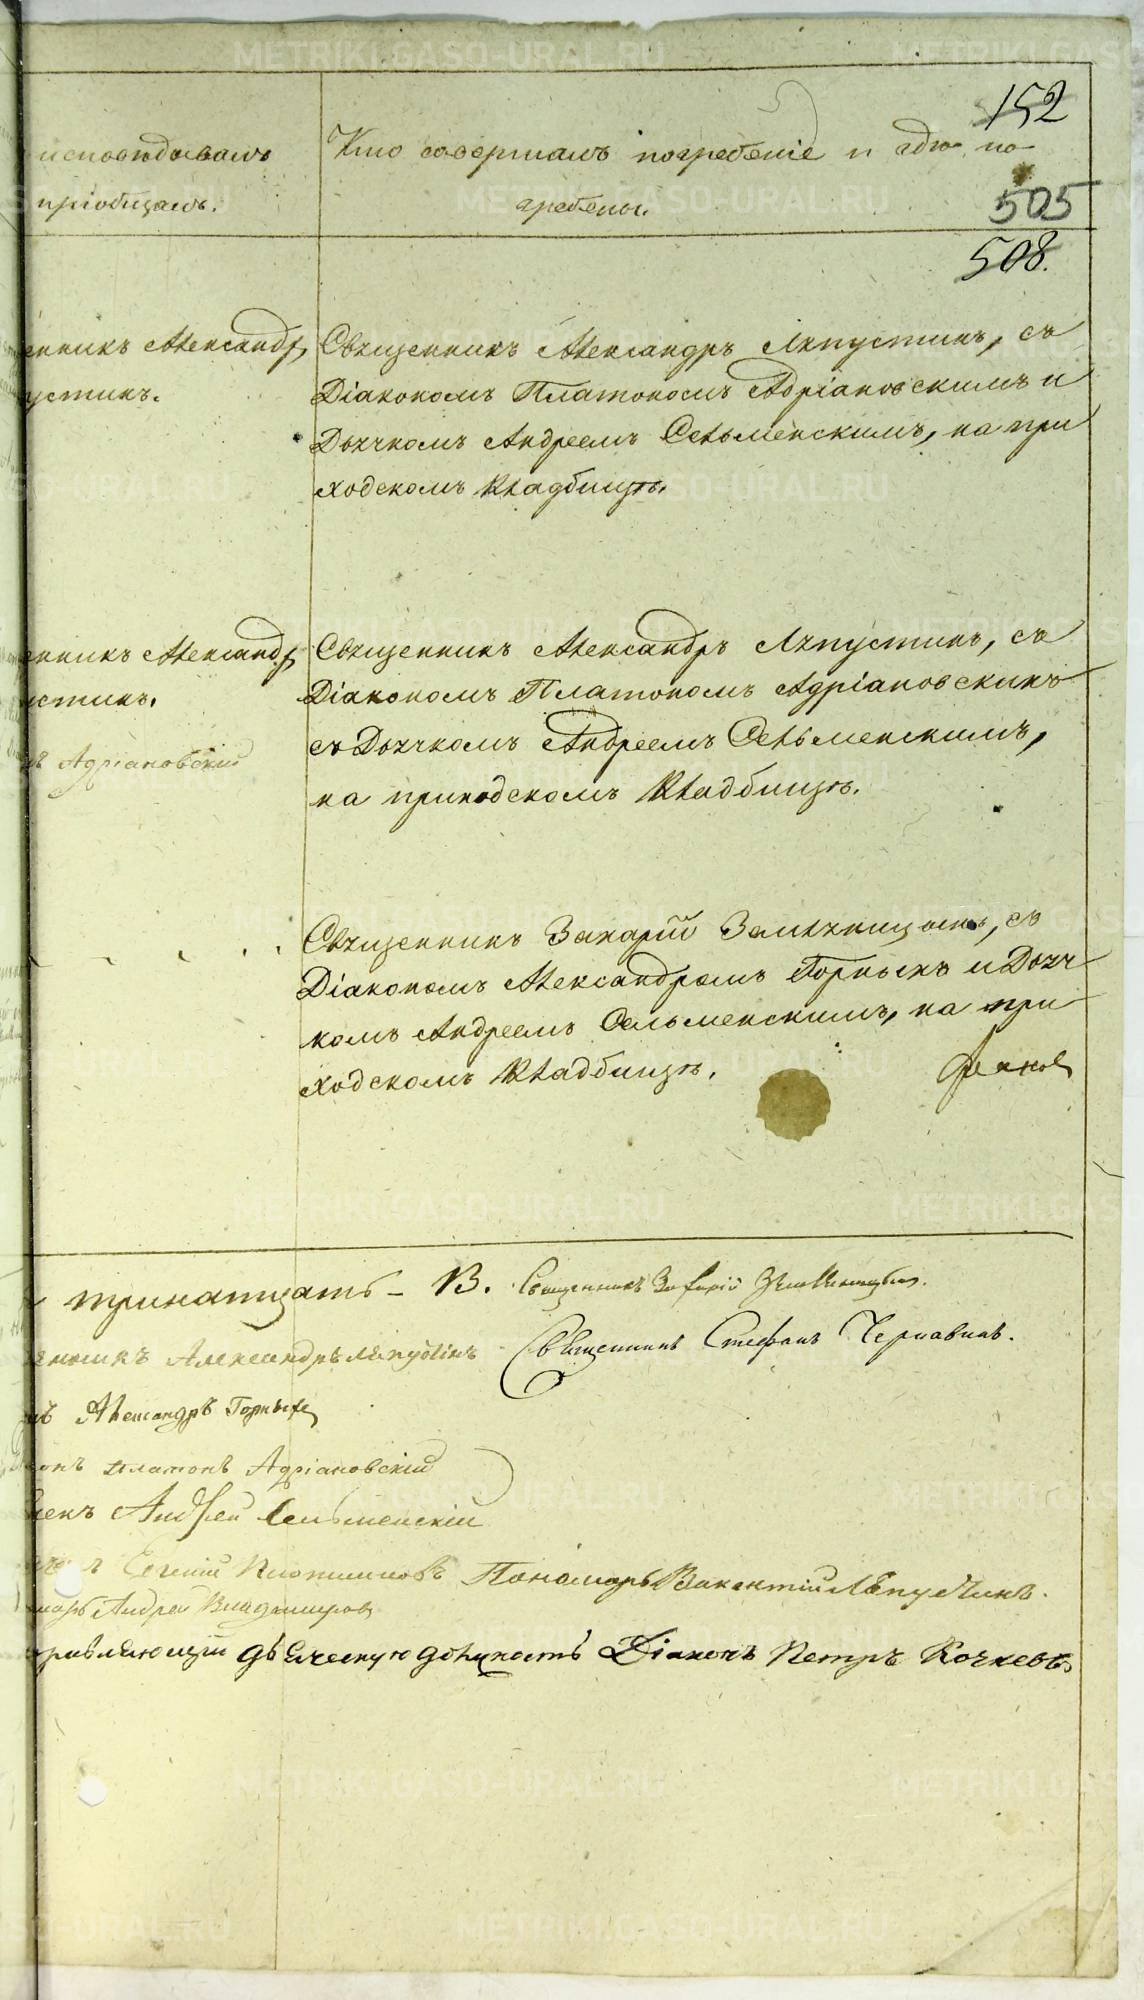 152
исповѣдывалъ
пріобщалъ.
Кто совершалъ погребеніе и гдѣ по-
гребены.
505
508.
енникъ Александр
устинъ.
Священникъ Александръ Ляпустинъ, съ
Діакономъ Платономъ Адріановскимъ и
Дьячкомъ Андреемъ Сельменскимъ, на при
ходскомъ кладбищѣ.
енникъ Александр
устинъ.
нъ Адріановскій
Священникъ Александръ Ляпустинъ, съ
Діакономъ Платономъ Адріановскимъ
съ Дьячкомъ Андреемъ Сельменскимъ,
на приходскомъ кладбищѣ.
Священникъ Захарій Земляницынъ, съ
Діакономъ Александромъ Горныхъ и Дьяч
комъ Андреемъ Сельменскимъ, на при
ходскомъ кладбищѣ.
тринатцать - 13. Священникъ Захарій Земляницынъ.
Александръ Ляпустинъ Священникъ Стефанъ Чернавинъ.
нъ Александръ Горныхъ
онъ Платонъ Адріановскій
чекъ Андрей Сельменскій
Евгеній Пономарь Викентій Ляпустинъ.
марь Андрей Владимировъ
правляющій дьяческую должность Діаконъ Петръ Кочневъ
METRIKI.GASO-URAL.RU